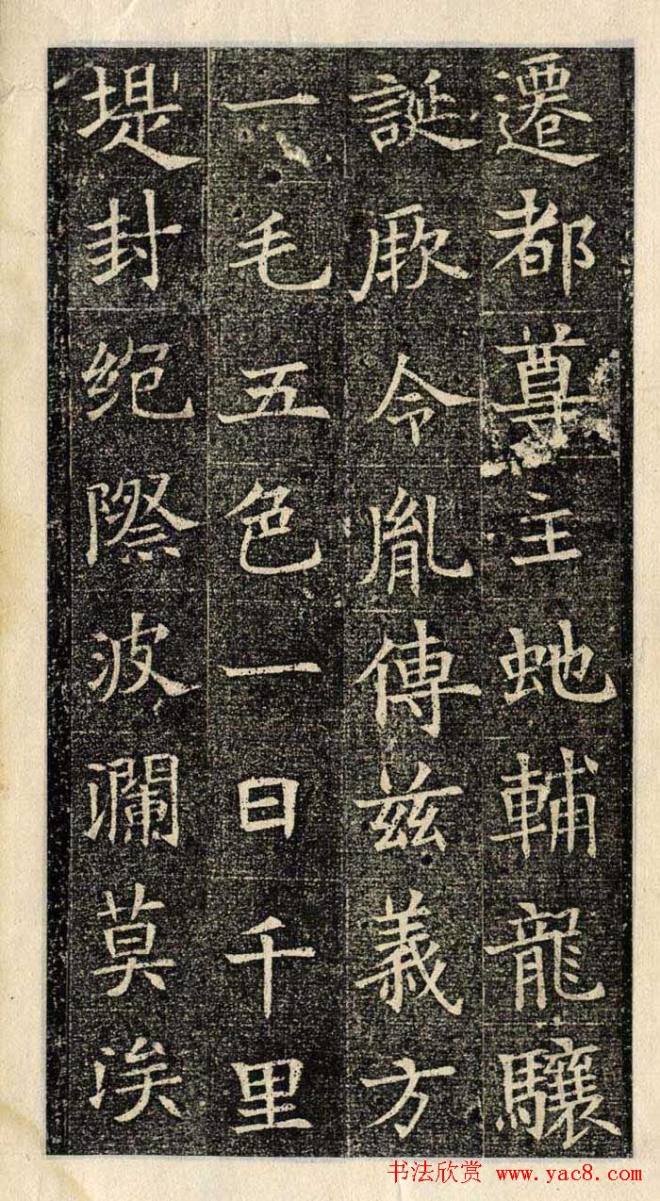 遷都尊主虵輔龍驤
誕厥令胤傳茲義方
一毛五色一日千里
堤封絕際波瀾莫涘
书法欣赏 www.yac8.com